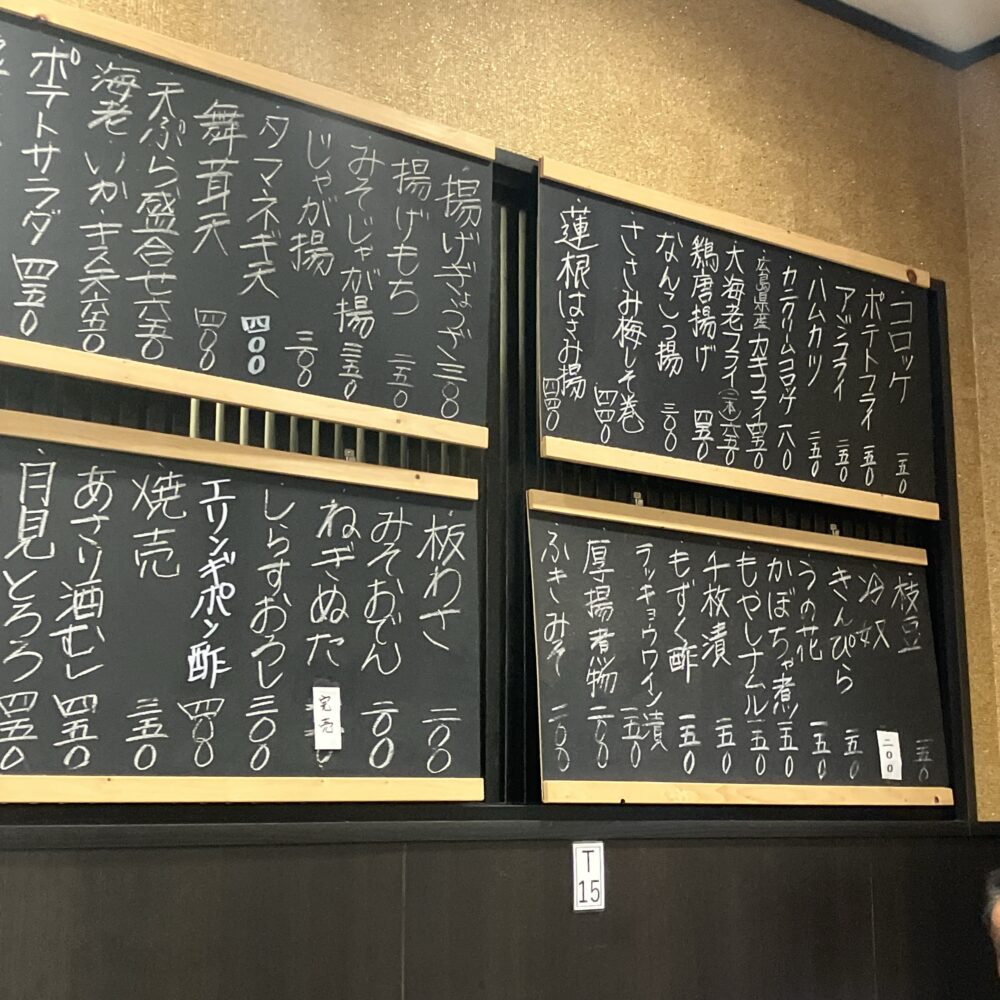 コロッケ 一五〇
ポテトフライ 一五〇
アジフライ 二五〇
ハムカツ 二五〇
カニクリームコロッケ 一八〇
広島県産カキフライ 四五〇
大海老フライ(二本)六五〇
鶏唐揚げ 四五〇
なんこつ揚 三〇〇
ささみ梅しそ巻 四四〇
蓮根はさみ揚 四四〇
揚げぎょうざ 三〇〇
揚げもち 二五〇
みそじゃが揚 三五〇
じゃが揚 三〇〇
タマネギ天 四〇〇
舞茸天 四〇〇
天ぷら盛合せ 六五〇
海老、いか、キス天 六五〇
ポテトサラダ 四五〇
枝豆 一五〇
冷奴 二〇〇
きんぴら 一五〇
うの花 一五〇
かぼちゃ煮 一五〇
もやしナムル 一五〇
千枚漬 一五〇
もずく酢 一五〇
ラッキョウワイン漬 一五〇
厚揚煮物 二〇〇
ふきみそ 二〇〇
板わさ 二〇〇
みそおでん 二〇〇
ねぎぬた 完売
しらすおろし 三〇〇
エリンギポン酢 四〇〇
焼売 三五〇
あさり酒むし 四五〇
月見とろろ 四五〇
T
15